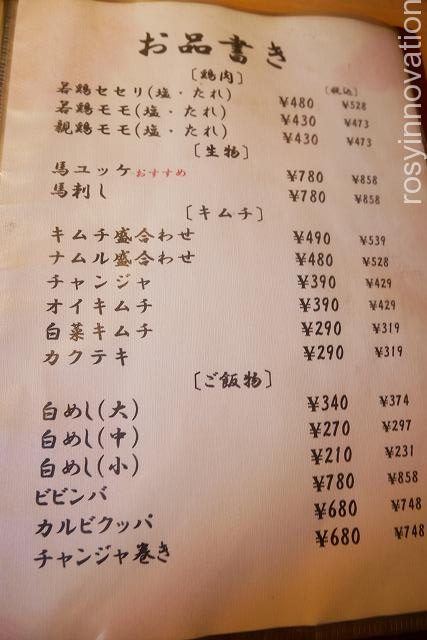 お品書き
〔鶏肉〕 (税込)
若鶏セセリ(塩・たれ) ¥480 ¥528
若鶏モモ(塩・たれ) ¥430 ¥473
親鶏モモ(塩・たれ) ¥430 ¥473
〔生物〕
馬ユッケおすすめ ¥780 ¥858
馬刺し ¥780 ¥858
〔キムチ〕
キムチ盛合わせ ¥490 ¥539
ナムル盛合わせ ¥480 ¥528
チャンジャ ¥390 ¥429
オイキムチ ¥390 ¥429
白菜キムチ ¥290 ¥319
カクテキ ¥290 ¥319
〔ご飯物〕
白めし(大) ¥340 ¥374
白めし(中) ¥270 ¥297
白めし(小) ¥210 ¥231
ビビンバ ¥780 ¥858
カルビクッパ ¥680 ¥748
チャンジャ巻き ¥680 ¥748
rosyinnovation